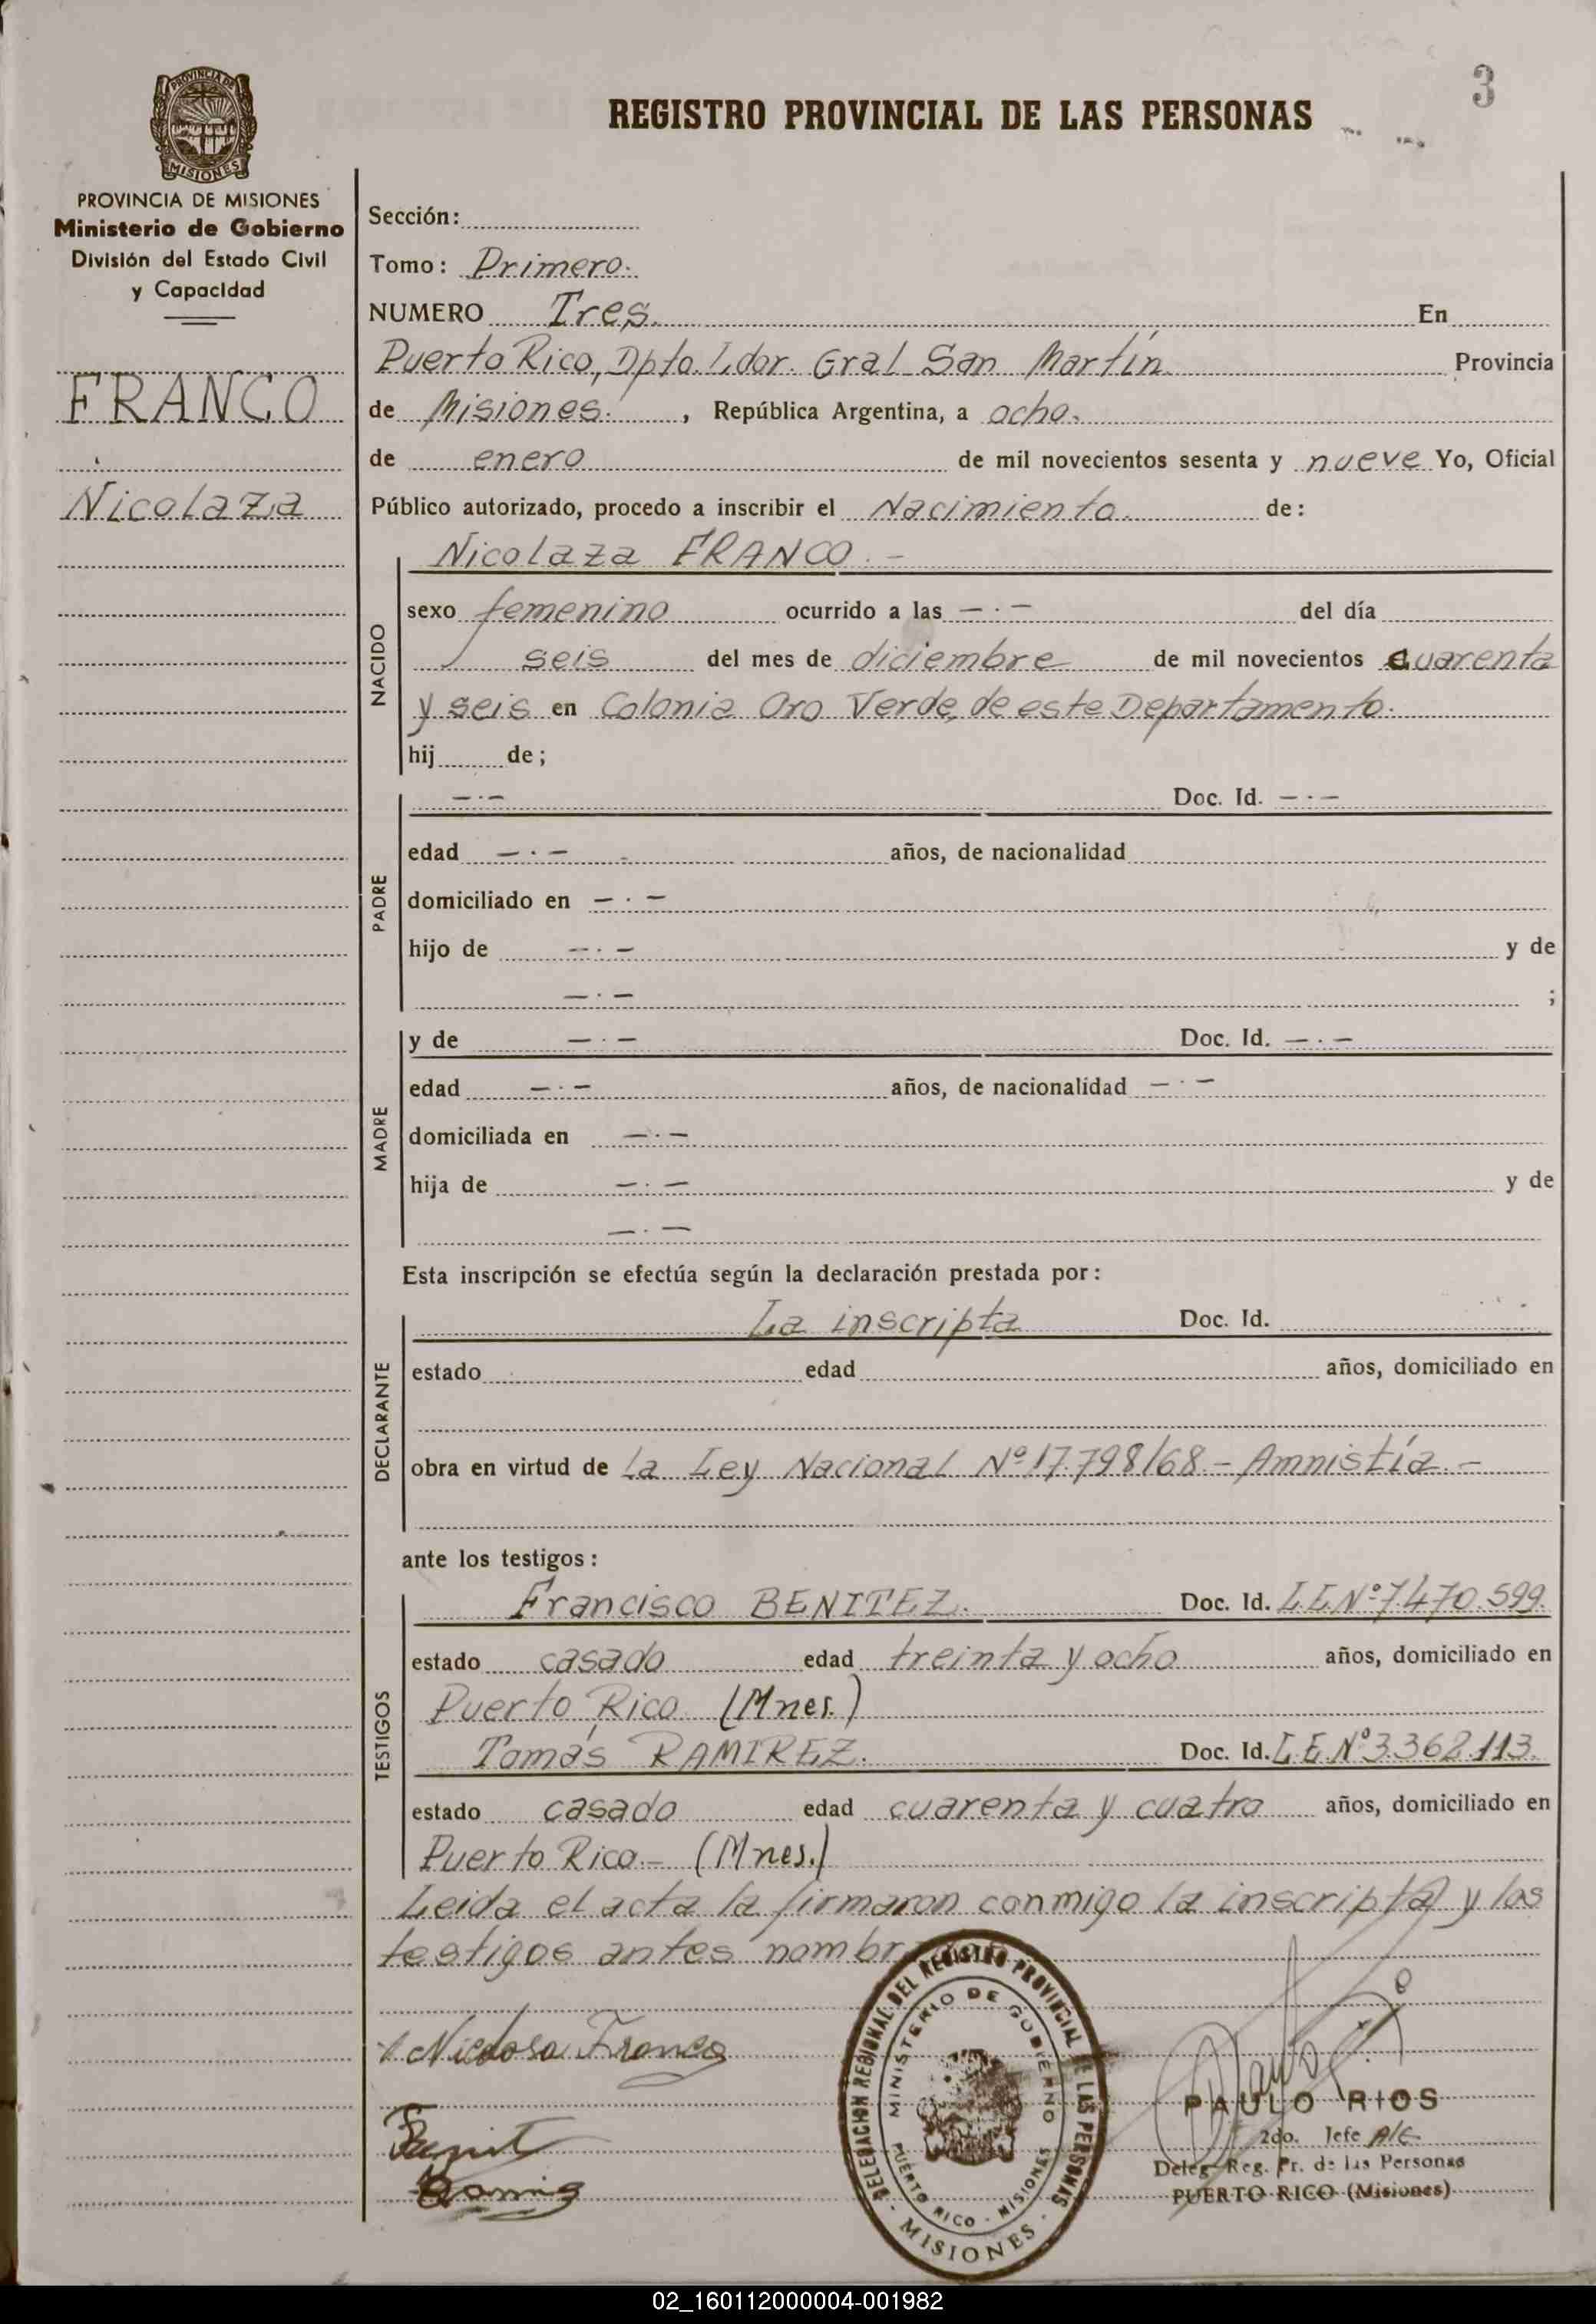 3
REGISTRO PROVINCIAL DE LAS PERSONAS
PROVINCIA DE MISIONES
PROVINCIA DE MISIONES
Ministerio de Gobierno
División del Estado Civil
y Capacidad
FRANCO
Nicolaza
Sección:
Tomo: Primero.
NUMERO Tres. En
Puerto Rico, Dpto. Ldor. Gral San Martín Provincia
de Misiones. , República Argentina, a ocho.
de enero de mil novecientos sesenta y nueve Yo, Oficial
Público autorizado, procedo a inscribir el Nacimiento. de:
NACIDO
Nicolaza FRANCO. -
sexo femenino ocurrido a las — . — del día
seis del mes de diciembre de mil novecientos cuarenta
y seis en Colonia Oro Verde, de este Departamento.
hij de;
PADRE
— . — Doc. Id. — . —
edad — . — años, de nacionalidad
domiciliado en — . —
hijo de — . — y de
— . — ;
MADRE
y de — . — Doc. Id. — . —
edad — . — años, de nacionalidad — . —
domiciliada en — . —
hija de — . — y de
— . —
Esta inscripción se efectúa según la declaración prestada por:
DECLARANTE
La inscripta Doc. Id.
estado edad años, domiciliado en
obra en virtud de la Ley Nacional Nº 17.798/68 - Amnistía. -
ante los testigos:
TESTIGOS
Francisco BENITEZ. Doc. Id. L.E. Nº 7.470.599.
estado casado edad treinta y ocho años, domiciliado en
Puerto Rico (Mnes.)
Tomás RAMIREZ. Doc. Id. L.E. Nº 3.362.113.
estado casado edad cuarenta y cuatro años, domiciliado en
Puerto Rico.- (Mnes.)
Leida el acta la firmaron conmigo la inscripta y los
testigos antes nombr
Nicolasa Franco
DELEGACION REGIONAL DEL REGISTRO PROVINCIAL DE LAS PERSONAS
MINISTERIO DE GOBIERNO
PUERTO RICO - MISIONES
- MISIONES -
PAULO RIOS
2do. Jefe A/C
Deleg. Reg. Pr. de las Personas
PUERTO RICO (Misiones)
02_160112000004-001982